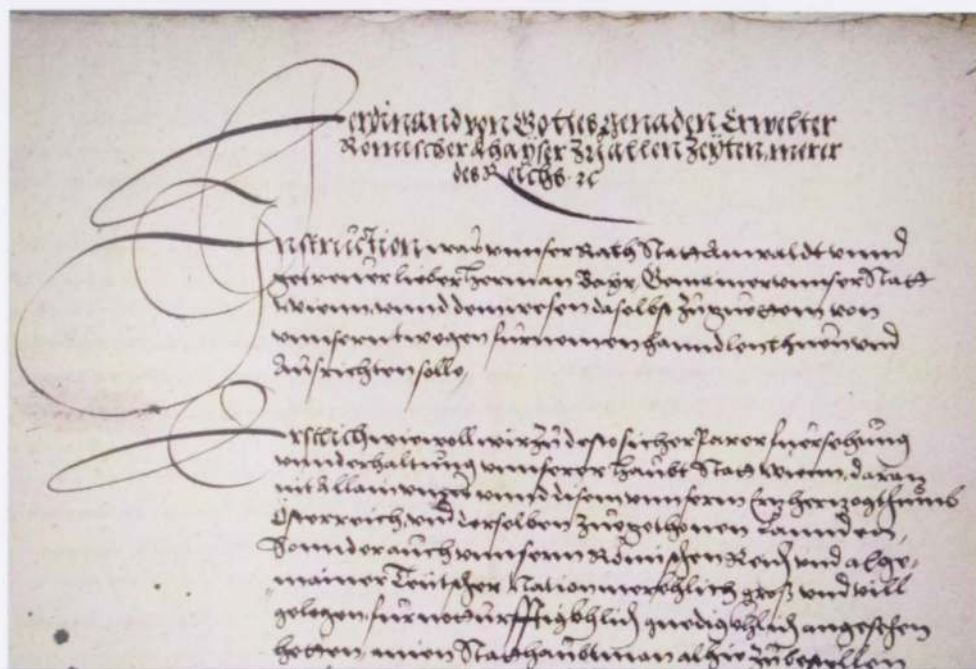 Ferdinand von Gottes genaden Erwelter
Römischer Khayser Zu allen Zeÿten merer
des Reichs ꝛc
Instruction was unnser Rath Statt Anwaldt unnd
getrewer lieber Herman Bayr, Gemainer unnser Statt
Wienn, unnd dem wesen daselbst zu guettem von
unnserntwegen fürnemen hanndlen thuen und
Ausrichten solle,
Erstlich wiewoll wir zu desto sicherer fuersehung
unnd erhaltung unnserer Haubt Statt Wienn, daran
nit Allain unns unnd disem unnserm Ertzherzogthumb
Österreich, und derselben zuegethonen Lannden,
Sonnder auch unnserm Römischen Reich und alge-
mainer Teutscher Nation merckhlich groß und vill
gelegen für notturfftigkhlich gnedigkhlich angesehen
hetten, ainen Statthaubtman alhie zu bestellen